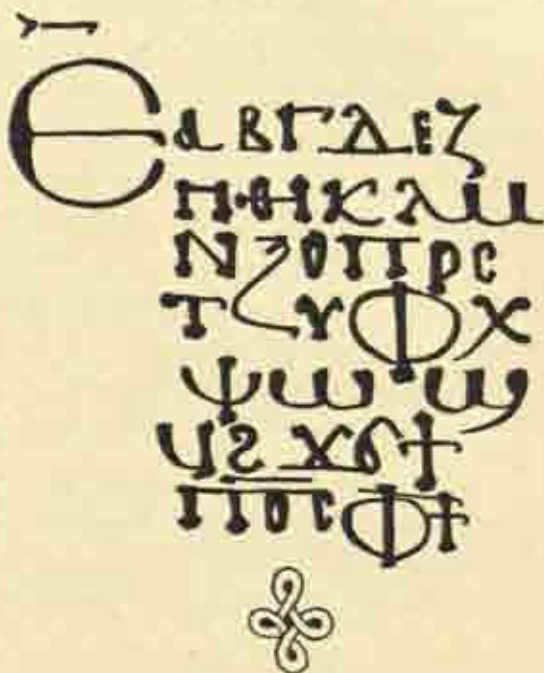 Ⲉⲁⲃⲅⲇⲉⲍ
ⲏⲑⲓⲕⲗⲙ
ⲛⲝⲟⲡⲣⲥ
ⲧⲩⲫⲭ
ⲯⲱϣ
ϥϩϫϭϯ
ⲡ̅ⲟ̅ⲥ̅ ⲫ̅ϯ̅